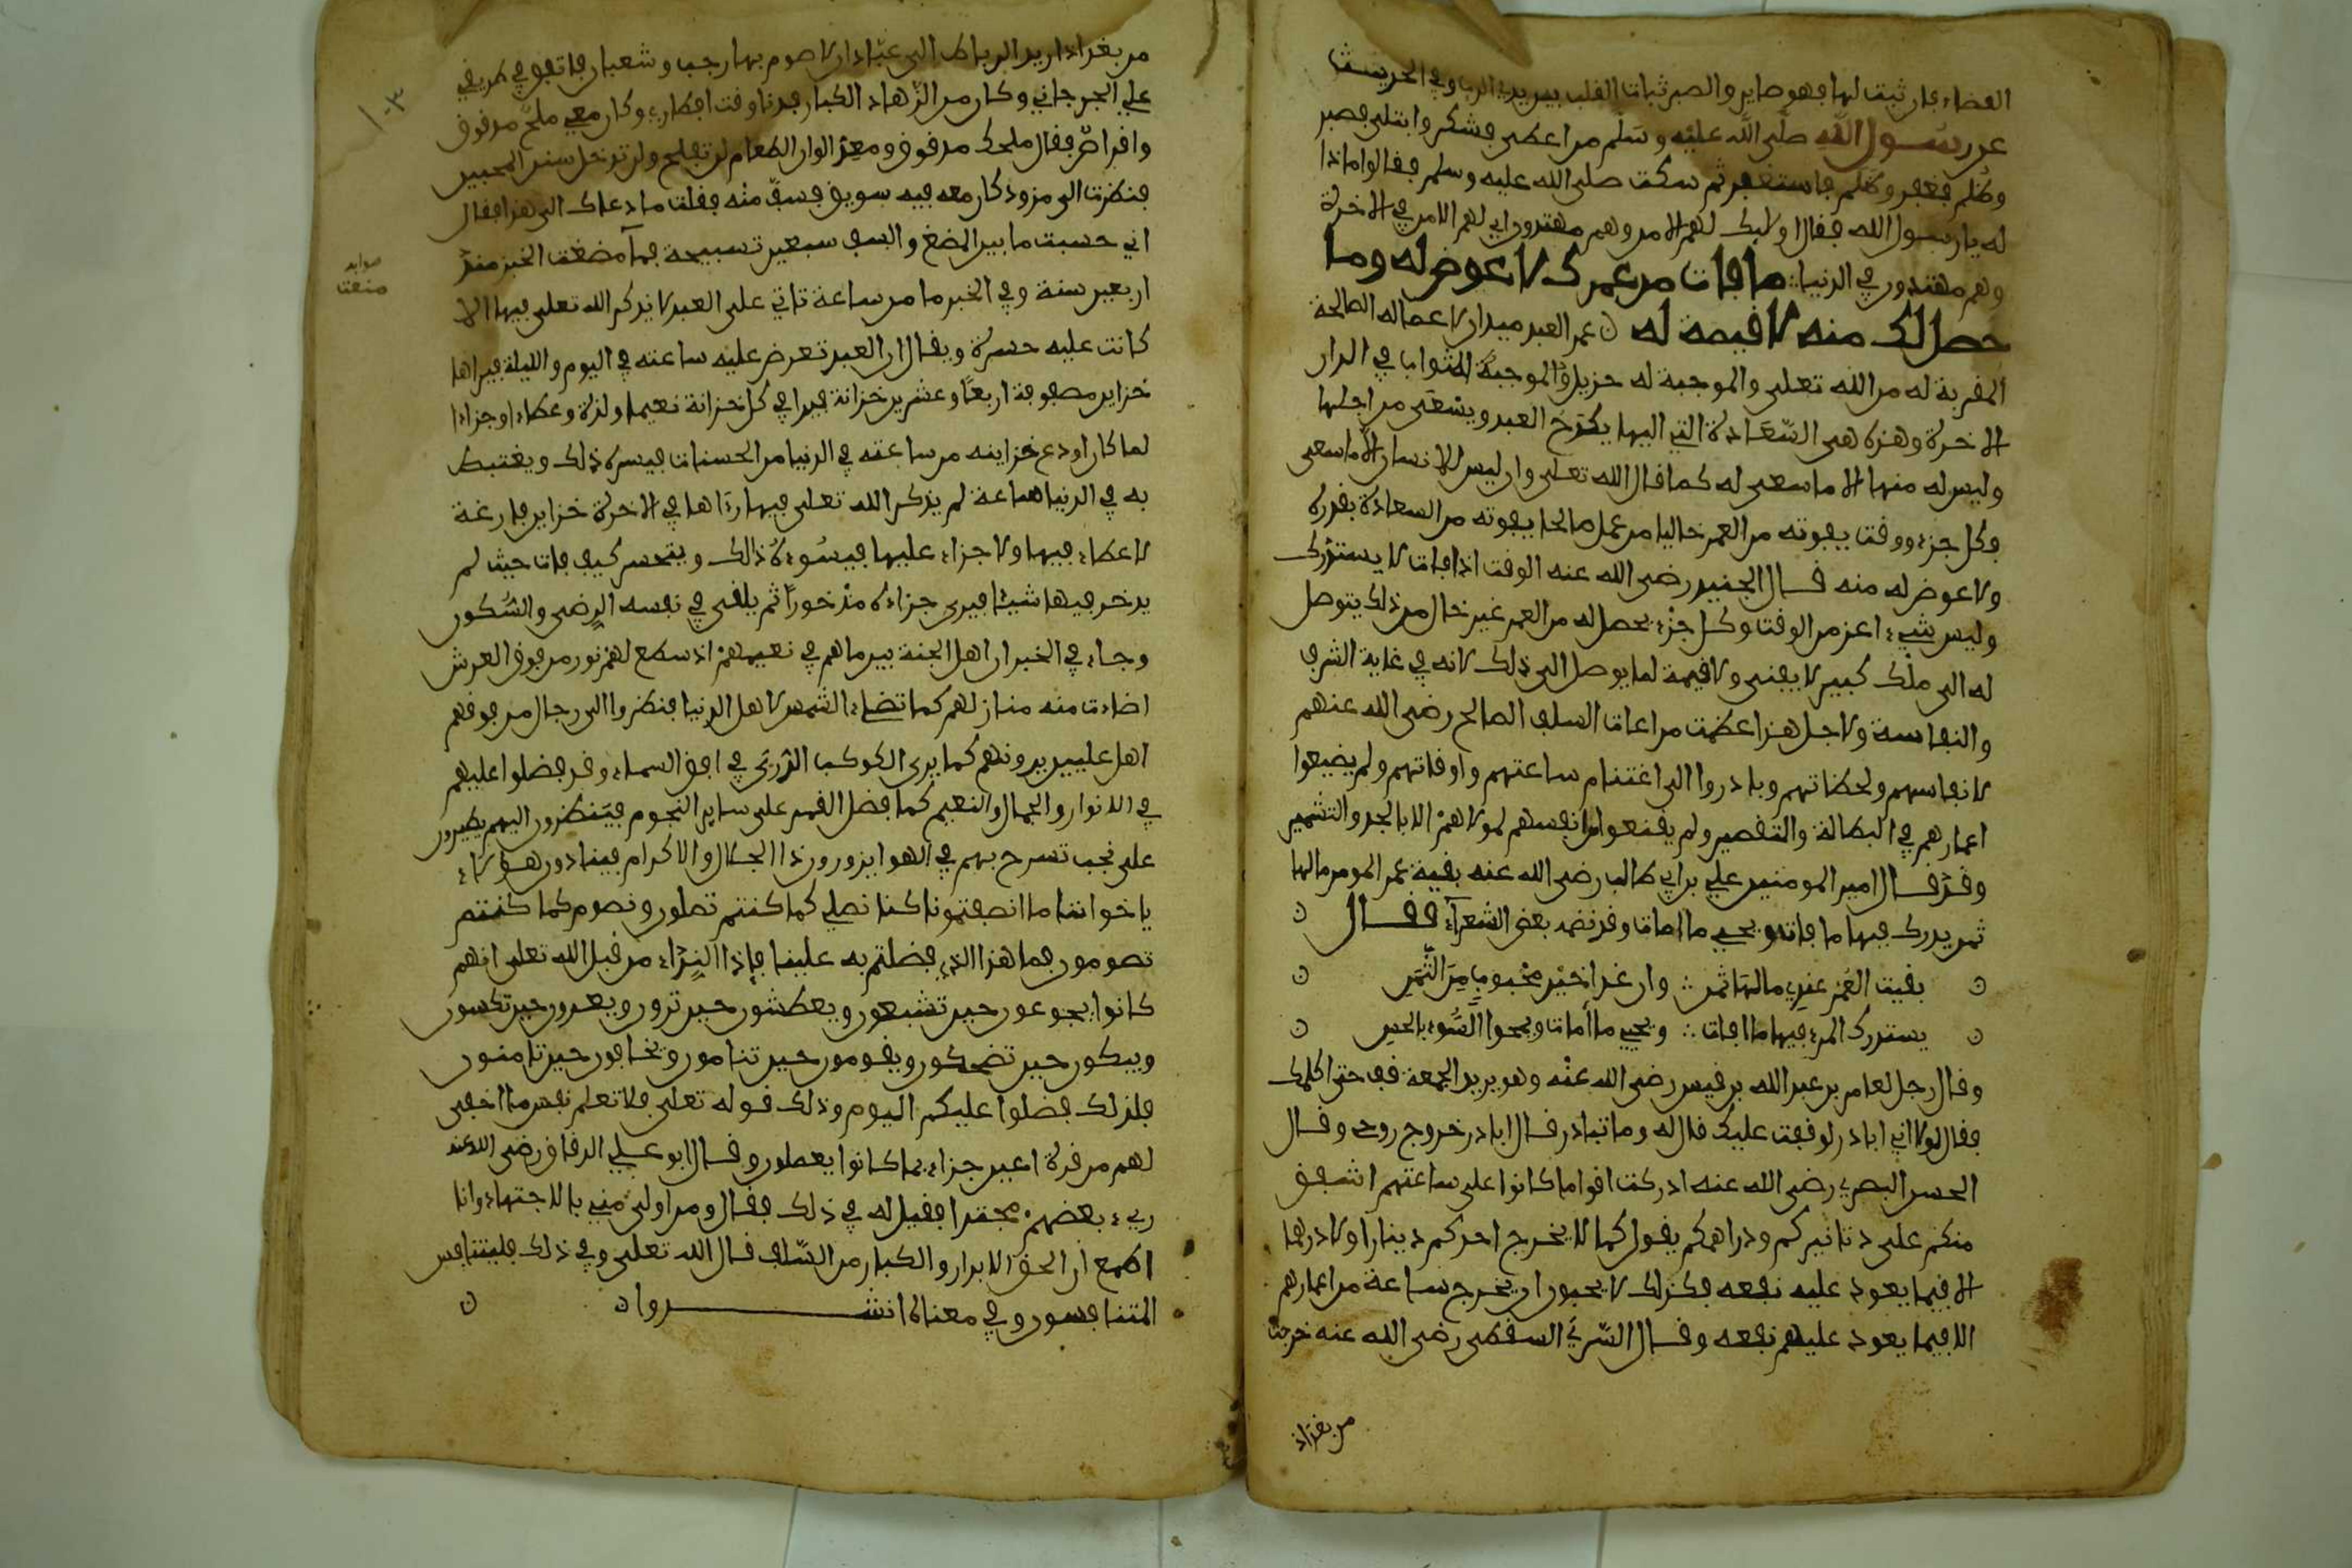 القضاء فإن ثبت لها فهو صابر والصبر ثبات القلب بين يدي الرب وفي الحديث
عن رسول الله صلى الله عليه وسلم من اعطى فشكر وابتلى فصبر
وظلم فغفر وظلم فاستغفر ثم سكت صلى الله عليه وسلم فقالوا ماذا
له يا رسول الله فقال اولايك لهم الامن وهم مهتدون اي لهم الامن في الاخرة
وهم مهتدون في الدنيا ∴ ما فات من عمرك لا عوض له وما
حصل لك منه لا قيمة له ن عمر العبد ميدان لاعماله الصالحة
المقربة له من الله تعلى والموجبة له جزيل والموجبة الثواب في الدار
الاخرة وهذه هي السعادة التي اليها يكدح العبد ويسعى من اجلها
وليس له منها الا ما سعى له كما قال الله تعلى وان ليس للانسان الا ما سعى
وكل جزء ووقت يفوته من العمر خاليا من عمل صالح يفوته من السعادة بقدره
ولا عوض له منه قال الجنيد رضي الله عنه الوقت اذا فات لا يستدرك
وليس شيء اعز من الوقت وكل جزء يحصل له من العمر غير خال من ذلك يتوصل
له الى ملك كبير لا يفنى ولا قيمة لما يوصل الى ذلك لانه في غاية الشرف
والنفاسة ولاجل هذا عظمت مراعات السلف الصالح رضي الله عنهم
لانفاسهم ولحظاتهم وبادروا الى اغتنام ساعتهم واوقاتهم ولم يضيعوا
اعمارهم في البطالة والتقصير ولم يقنعوا من انفسهم لمولاهم الا بالجد والتشمير
وقد قال امير المومنين علي بن ابي طالب رضي الله عنه بقية عمر المومن ما لها
ثمن يدرك فيها ما فاته ويحيي ما امات وقد نضمه بعض الشعراء فقال ن
ن بقيت العمر عندي ما لها ثمن ∴ وان غدا خير محبوب من الثمن ن
ن يستدرك المرء فيها ما افات ∴ ويحيي ما أمات ويمحوا السوء بالحسن ن
وقال رجل لعامر بن عبد الله بن قيس رضي الله عنه وهو يريد الجمعة قف حتى اكلمك
فقال لولا اني ابادر لوقفت عليك قال له وما تبادر قال ابادر خروج روحي وقال
الحسن البصري رضي الله عنه ادركت اقواما كانوا على ساعتهم اشفق
منكم على دنانيركم ودراهمكم يقول كما لا يخرج احدكم دينارا ولا درهما
الا فيما يعود عليه نفعه فكذلك لا يحبون ان يخرج ساعة من اعمارهم
الا فيما يعود عليهم نفعه وقال السري السقطي رضي الله عنه خرجت
من بغداد
١٠٣
من بغداد اريد الرباط الى عبادان لاصوم بها رجب وشعبان فاتفق في طريقي
علي الجرجاني وكان من الزهاد الكبار فدنا وقت افطاري وكان معي ملح مدقوق
واقراص فقال ملحك مدقوق ومعك الوان الطعام لن تفلح ولن تدخل سنن المحبين
فنظرت الى مزود كان معه فيه سويق فسف منه فقلت ما دعاك الى هذا فقال
اني حسبت ما بين المضغ والسف سبعين تسبيحة فما مضغت الخبز منذ
صوابه
منعت
اربعين سنة وفي الخبر ما من ساعة تاتي على العبد لا يذكر الله تعلى فيها الا
كانت عليه حسرة ويقال ان العبد تعرض عليه ساعته في اليوم والليلة فيراها
خزاين مصفوفة اربعا وعشرين خزانة فيرا في كل خزانة نعيما ولذة وعطاء وجزاءا
لما كان اودع خزاينه من ساعته في الدنيا من الحسنات فيسره ذلك ويغتبط
به في الدنيا ساعة لم يذكر الله تعلى فيها رءاها في الاخرة خزاين فارغة
لا عطاء فيها ولا جزاء عليها فيسوءه ذالك ويتحسر كيف فات حيث لم
يدخر فيها شيئا فيرى جزاءه مذخورا ثم يلقى في نفسه الرضى والشكور
وجاء في الخبر ان اهل الجنة بين ما هم في نعيمهم اذ سطع لهم نور من فوق العرش
اضاءت منه منازلهم كما تضاء الشمس لاهل الدنيا فنظروا الى رجال من فوقهم
اهل عليين يرونهم كما يرى الكوكب الدري في افق السماء وقد فضلوا عليهم
في الانوار والجمال والنعيم كما فضل القمر على ساير النجوم فينظرون اليهم يطيرون
على نجب تسرح بهم في الهوا يزورون ذا الجلال والاكرام فينادون هؤلاء
يا خواننا ما انصفتمونا كنا نصلي كما كنتم تصلون ونصوم كما كنتم
تصومون فما هذا الذي فضلتم به علينا فإذا النداء من قبل الله تعلى انهم
كانوا يجوعون حين تشبعون ويعطشون حين تروون ويعرون حين تكسون
ويبكون حين تضحكون ويقومون حين تنامون ويخافون حين تامنون
فلذلك فضلوا عليكم اليوم وذلك قوله تعلى فلا تعلم نفس ما اخفي
لهم من قرة اعين جزاء بما كانوا يعملون وقال ابو علي الدقاق رضي الله عنه
ريء بعضهم مجتهدا فقيل له في ذلك فقال ومن اولى مني بالاجتهاد وانا
اطمع ان الحق الابرار والكبار من السلف قال الله تعلى وفي ذلك فليتنافس
المتنافسون وفي معناه انشدوا ن ن